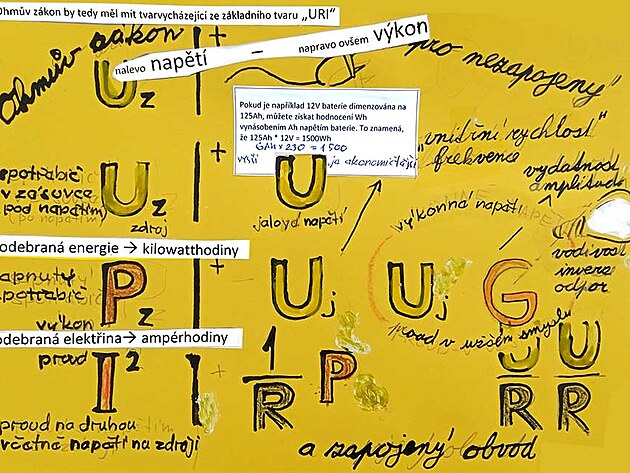 Ohmův zákon by tedy měl mit tvarvycházející ze základního tvaru „URI"
Ohmův zákon
nalevo napětí – napravo ovšem výkon
pro nezapojený
U z +
Pokud je například 12V baterie dimenzována na
125Ah, můžete získat hodnocení Wh
vynásobením Ah napětím baterie. To znamená,
že 125Ah * 12V = 1500Wh
6Ah x 230 = 1500
vyšší je ekonomičtější
„vnitřní rychlost"
frekvence
vydatnost
amplituda
spotřebič
v zásuvce
(pod napětím)
U z +
zdroj
U
jalové napětí
výkonná napětí
odebraná energie → kilowatthodiny
zapnutý
spotřebič
výkon
P z +
U j
U j
G
vodivost
inverz
odpor
proud v užším smyslu
odebraná elektřina → ampérhodiny
proud
I 2
1
R
P
U U
R R
proud na druhou
včetně napětí na zdroji
a zapojený obvod